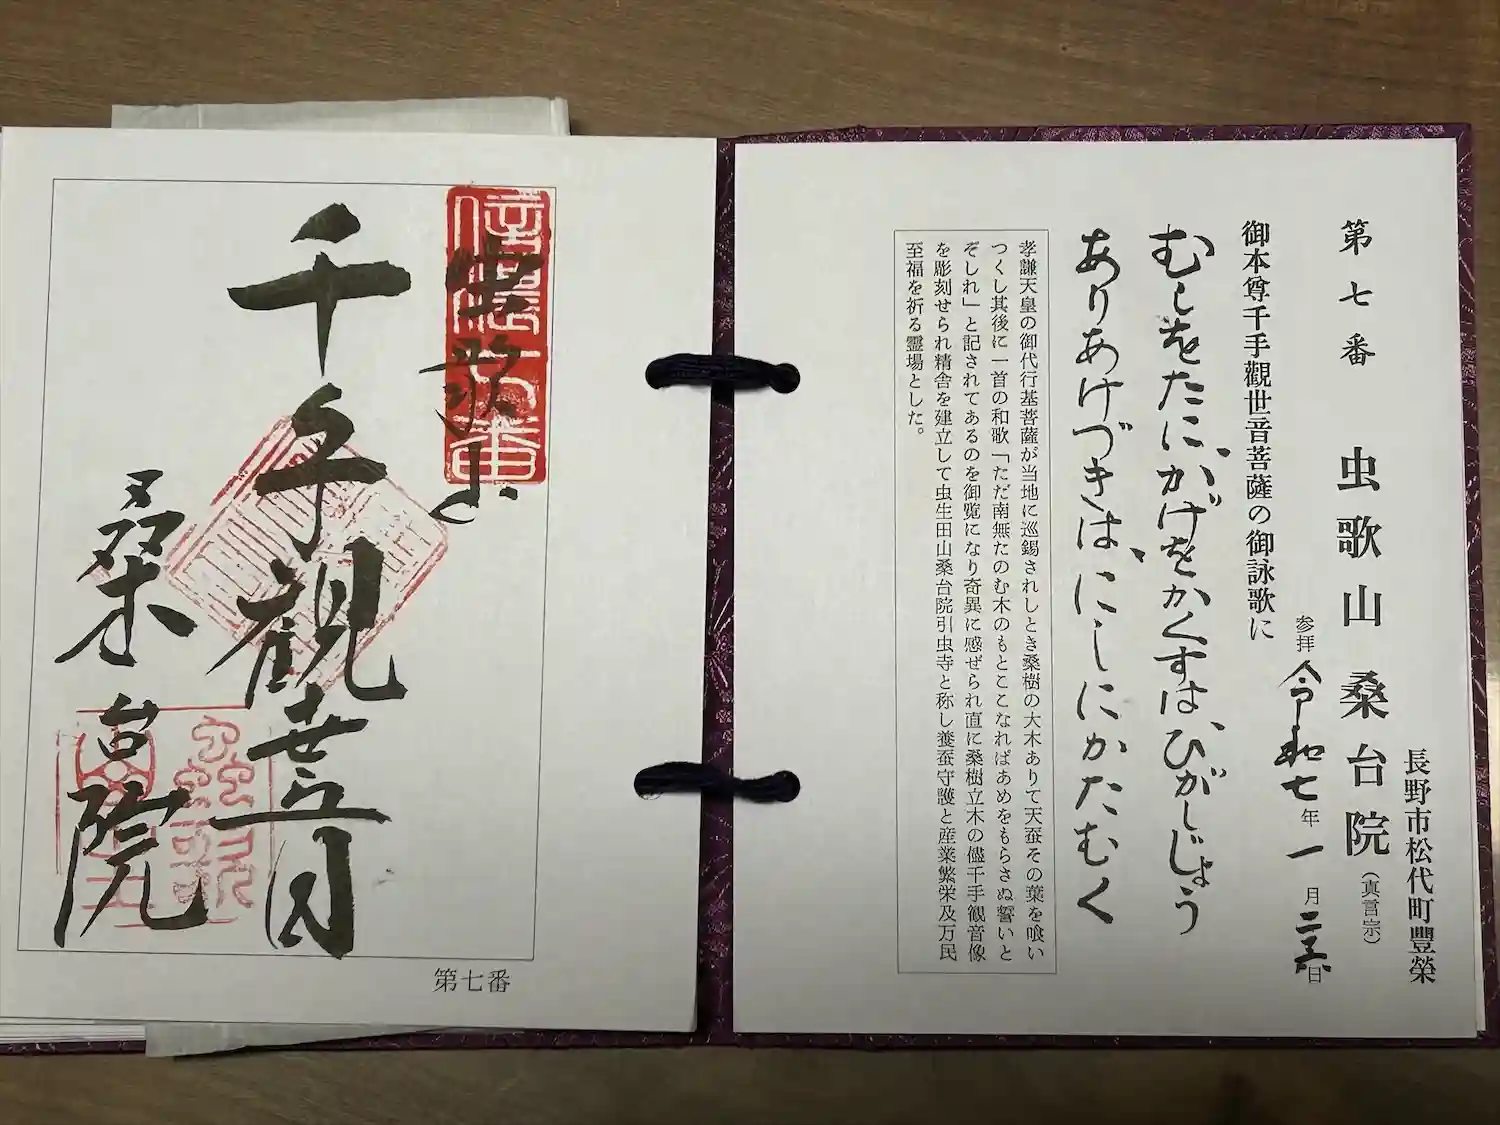 長野市松代町豐榮
第七番　虫歌山桑台院（真言宗）
参拝　令和七年一月二十六日
御本尊千手觀世音菩薩の御詠歌に
むしをたに、かげをかくすは、ひがしじょう
ありあけづきは、にしにかたむく
孝謙天皇の御代行基菩薩が当地に巡錫されしとき桑樹の大木ありて天蚕その葉を喰い
つくし其後に一首の和歌「ただ南無たのむ木のもとここなればあめをもらさぬ誓いと
ぞしれ」と記されてあるのを御覧になり奇異に感ぜられ直に桑樹立木の儘千手観音像
を彫刻せられ精舎を建立して虫生田山桑台院引虫寺と称し養蚕守護と産業繁栄及万民
至福を祈る霊場とした。
信濃七番
虫歌山
千手観世音
桑台院
第七番